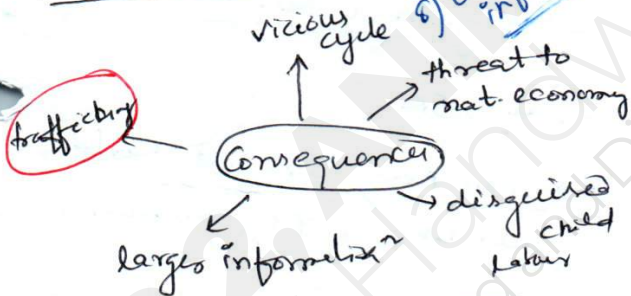 vicious
cycle
8)
threat to
nat. economy
trafficking
Consequences
disguised
child
labour
larger informalisⁿ